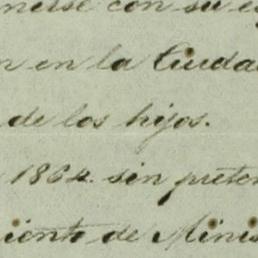 nerse con su e
n en la Ciuda
de los hijos.
1864. sin preten
iento de Minis